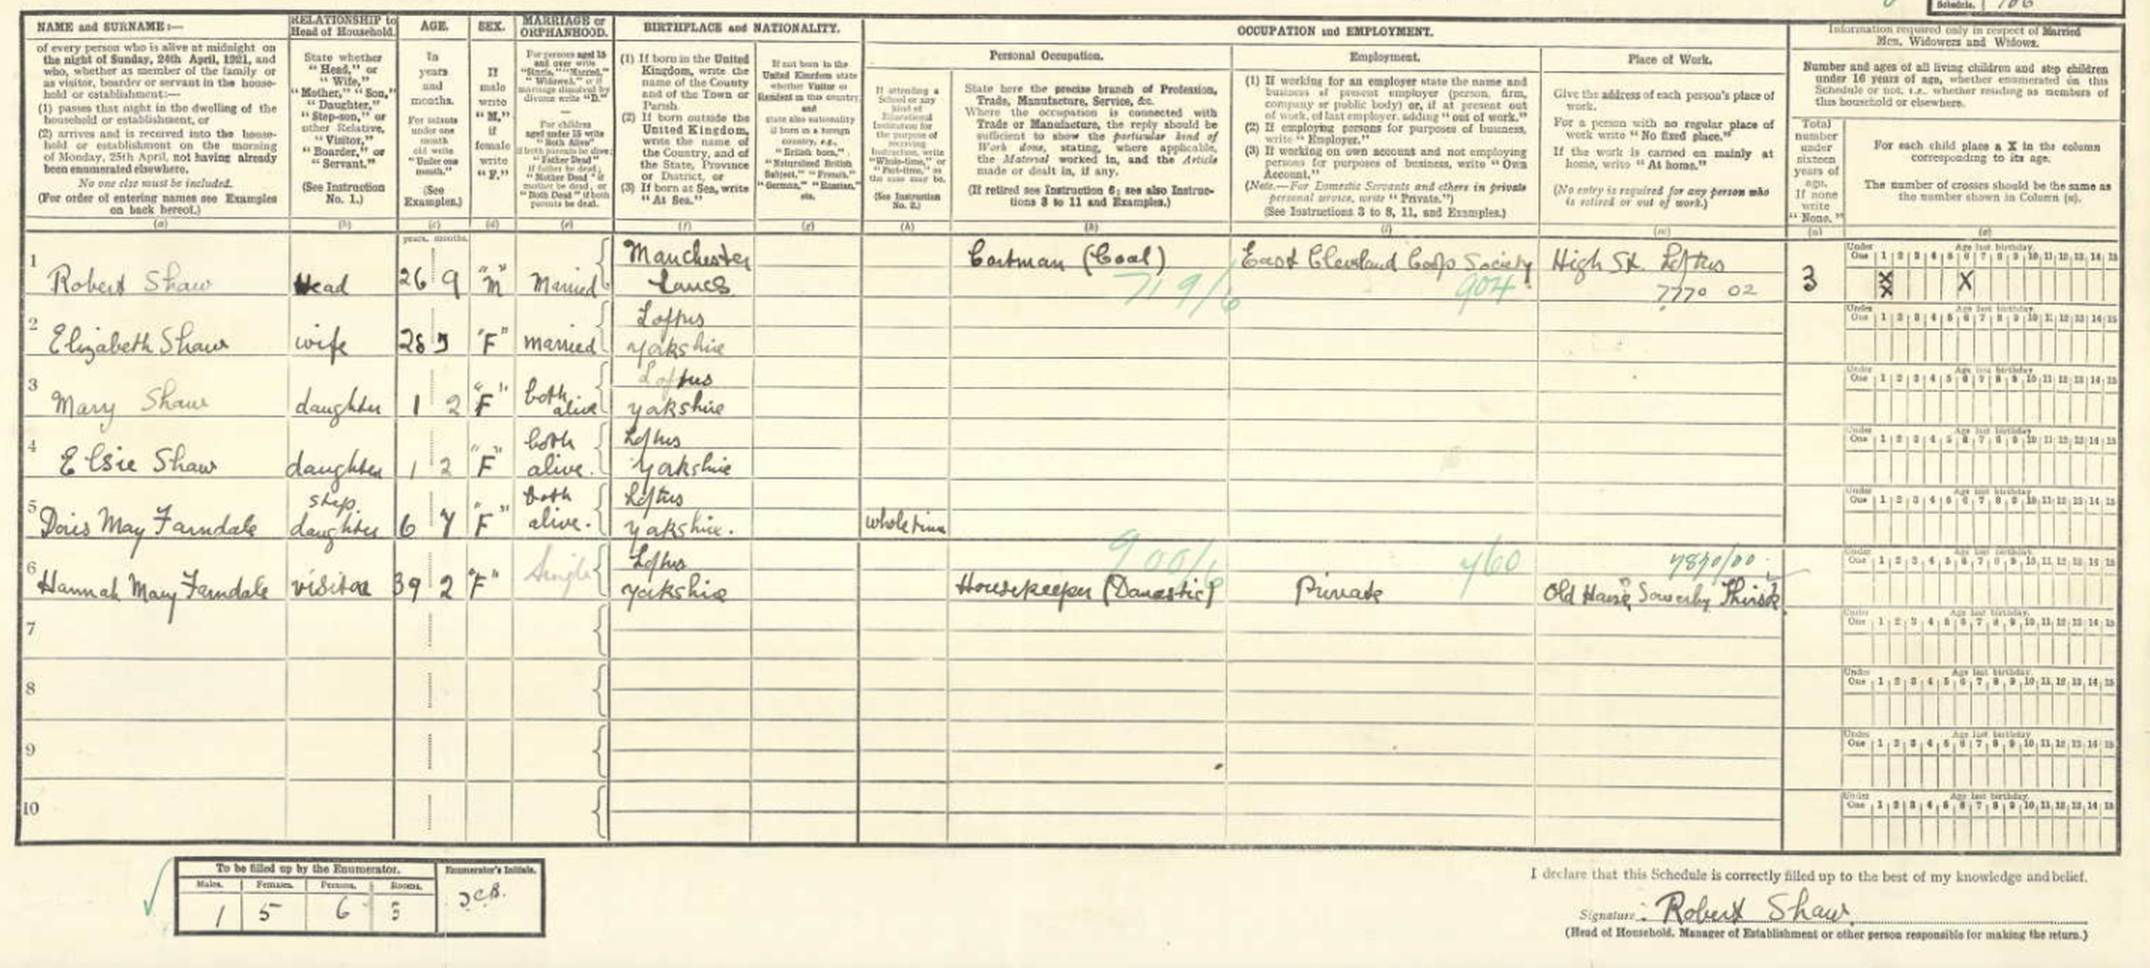 Schedule.
NAME and SURNAME:—
of every person who is alive at midnight on
the night of Sunday, 24th April, 1921, and
who, whether as member of the family or
as visitor, boarder or servant in the house-
hold or establishment:—
(1) passes that night in the dwelling of the
household or establishment, or
(2) arrives and is received into the house-
hold or establishment on the morning
of Monday, 25th April, not having already
been enumerated elsewhere.
No one else must be included.
(For order of entering names see Examples
on back hereof.)
(a)
RELATIONSHIP to
Head of Household.
State whether
"Head," or
"Wife,"
"Mother," "Son,"
"Daughter,"
"Step-son," or
other Relative,
"Visitor,"
"Boarder," or
"Servant."
(See Instruction
No. 1.)
(b)
AGE.
In
years
and
months.
For infants
under one
month
old write
"Under one
month."
(See
Examples.)
(c)
years. months.
SEX.
If
male
write
"M.,"
if
female
write
"F."
(d)
MARRIAGE or
ORPHANHOOD.
For persons aged 15
and over write
"Single," "Married,"
"Widowed," or if
marriage dissolved by
divorce write "D."
For children
aged under 15 write
"Both Alive"
if both parents be alive;
"Father Dead"
if father be dead;
"Mother Dead" if
mother be dead, or
"Both Dead" if both
parents be dead.
(e)
BIRTHPLACE and NATIONALITY.
(1) If born in the United
Kingdom, write the
name of the County
and of the Town or
Parish.
(2) If born outside the
United Kingdom,
write the name of
the Country, and of
the State, Province
or District, or
(3) If born at Sea, write
"At Sea."
(f)
(g)
(See Instruction
No. 2.)
(h)
OCCUPATION and EMPLOYMENT.
Personal Occupation.
State here the precise branch of Profession,
Trade, Manufacture, Service, &c.
Where the occupation is connected with
Trade or Manufacture, the reply should be
sufficient to show the particular kind of
Work done, stating, where applicable,
the Material worked in, and the Article
made or dealt in, if any.
(If retired see Instruction 6; see also Instruc-
tions 3 to 11 and Examples.)
(k)
Employment.
(1) If working for an employer state the name and
business of present employer (person, firm,
company or public body) or, if at present out
of work, of last employer, adding "out of work."
(2) If employing persons for purposes of business,
write "Employer."
(3) If working on own account and not employing
persons for purposes of business, write "Own
Account."
(Note.—For Domestic Servants and others in private
personal service, write "Private.")
(See Instructions 3 to 8, 11, and Examples.)
(l)
Place of Work.
Give the address of each person's place of
work.
For a person with no regular place of
work write "No fixed place."
If the work is carried on mainly at
home, write "At home."
(No entry is required for any person who
is retired or out of work.)
(m)
Information required only in respect of Married
Men, Widowers and Widows.
Number and ages of all living children and step children
under 16 years of age, whether enumerated on this
Schedule or not, i.e., whether residing as members of
this household or elsewhere.
Total
number
under
sixteen
years of
age.
If none
write
"None."
(n)
For each child place a X in the column
corresponding to its age.
The number of crosses should be the same as
the number shown in Column (n).
(o)
Under One Age last birthday.
1 2 3 4 5 6 7 8 9 10 11 12 13 14 15
1 Robert Shaw Head 26 9 "M" Married Manchester Lancs Cartman (Coal) 719/6 East Cleveland Coop Society 904 High St. Loftus 7770 02 3 X X X
2 Elizabeth Shaw wife "F" married Loftus Yorkshire
3 Mary Shaw daughter 1 2 "F" both alive Loftus Yorkshire
4 Elsie Shaw daughter 1 2 "F" both alive. Loftus Yorkshire
5 Doris May Farndale step. daughter 6 7 "F" both alive. Loftus Yorkshire. whole time
6 Hannah Mary Farndale visitor 39 2 "F" Single Loftus Yorkshire Housekeeper (Domestic) 900/6 Private 460 Sowerby Thirsk
7
8
9
10
To be filled up by the Enumerator.
Males. Females. Persons. Rooms.
1 5 6
Enumerator's Initials.
I declare that this Schedule is correctly filled up to the best of my knowledge and belief.
Signature: Robert Shaw
(Head of Household, Manager of Establishment or other person responsible for making the return.)